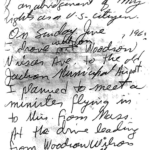 an abridgement of my
rights as a U.S. citizen.
On Sunday June , 196
I drove out Woodrow
Wilson Ave to the old
Jackson Municipal Airport.
I planned to meet a
minister flying in
to Miss. from Mass.
At the drive leading
from Woodrow Wilson